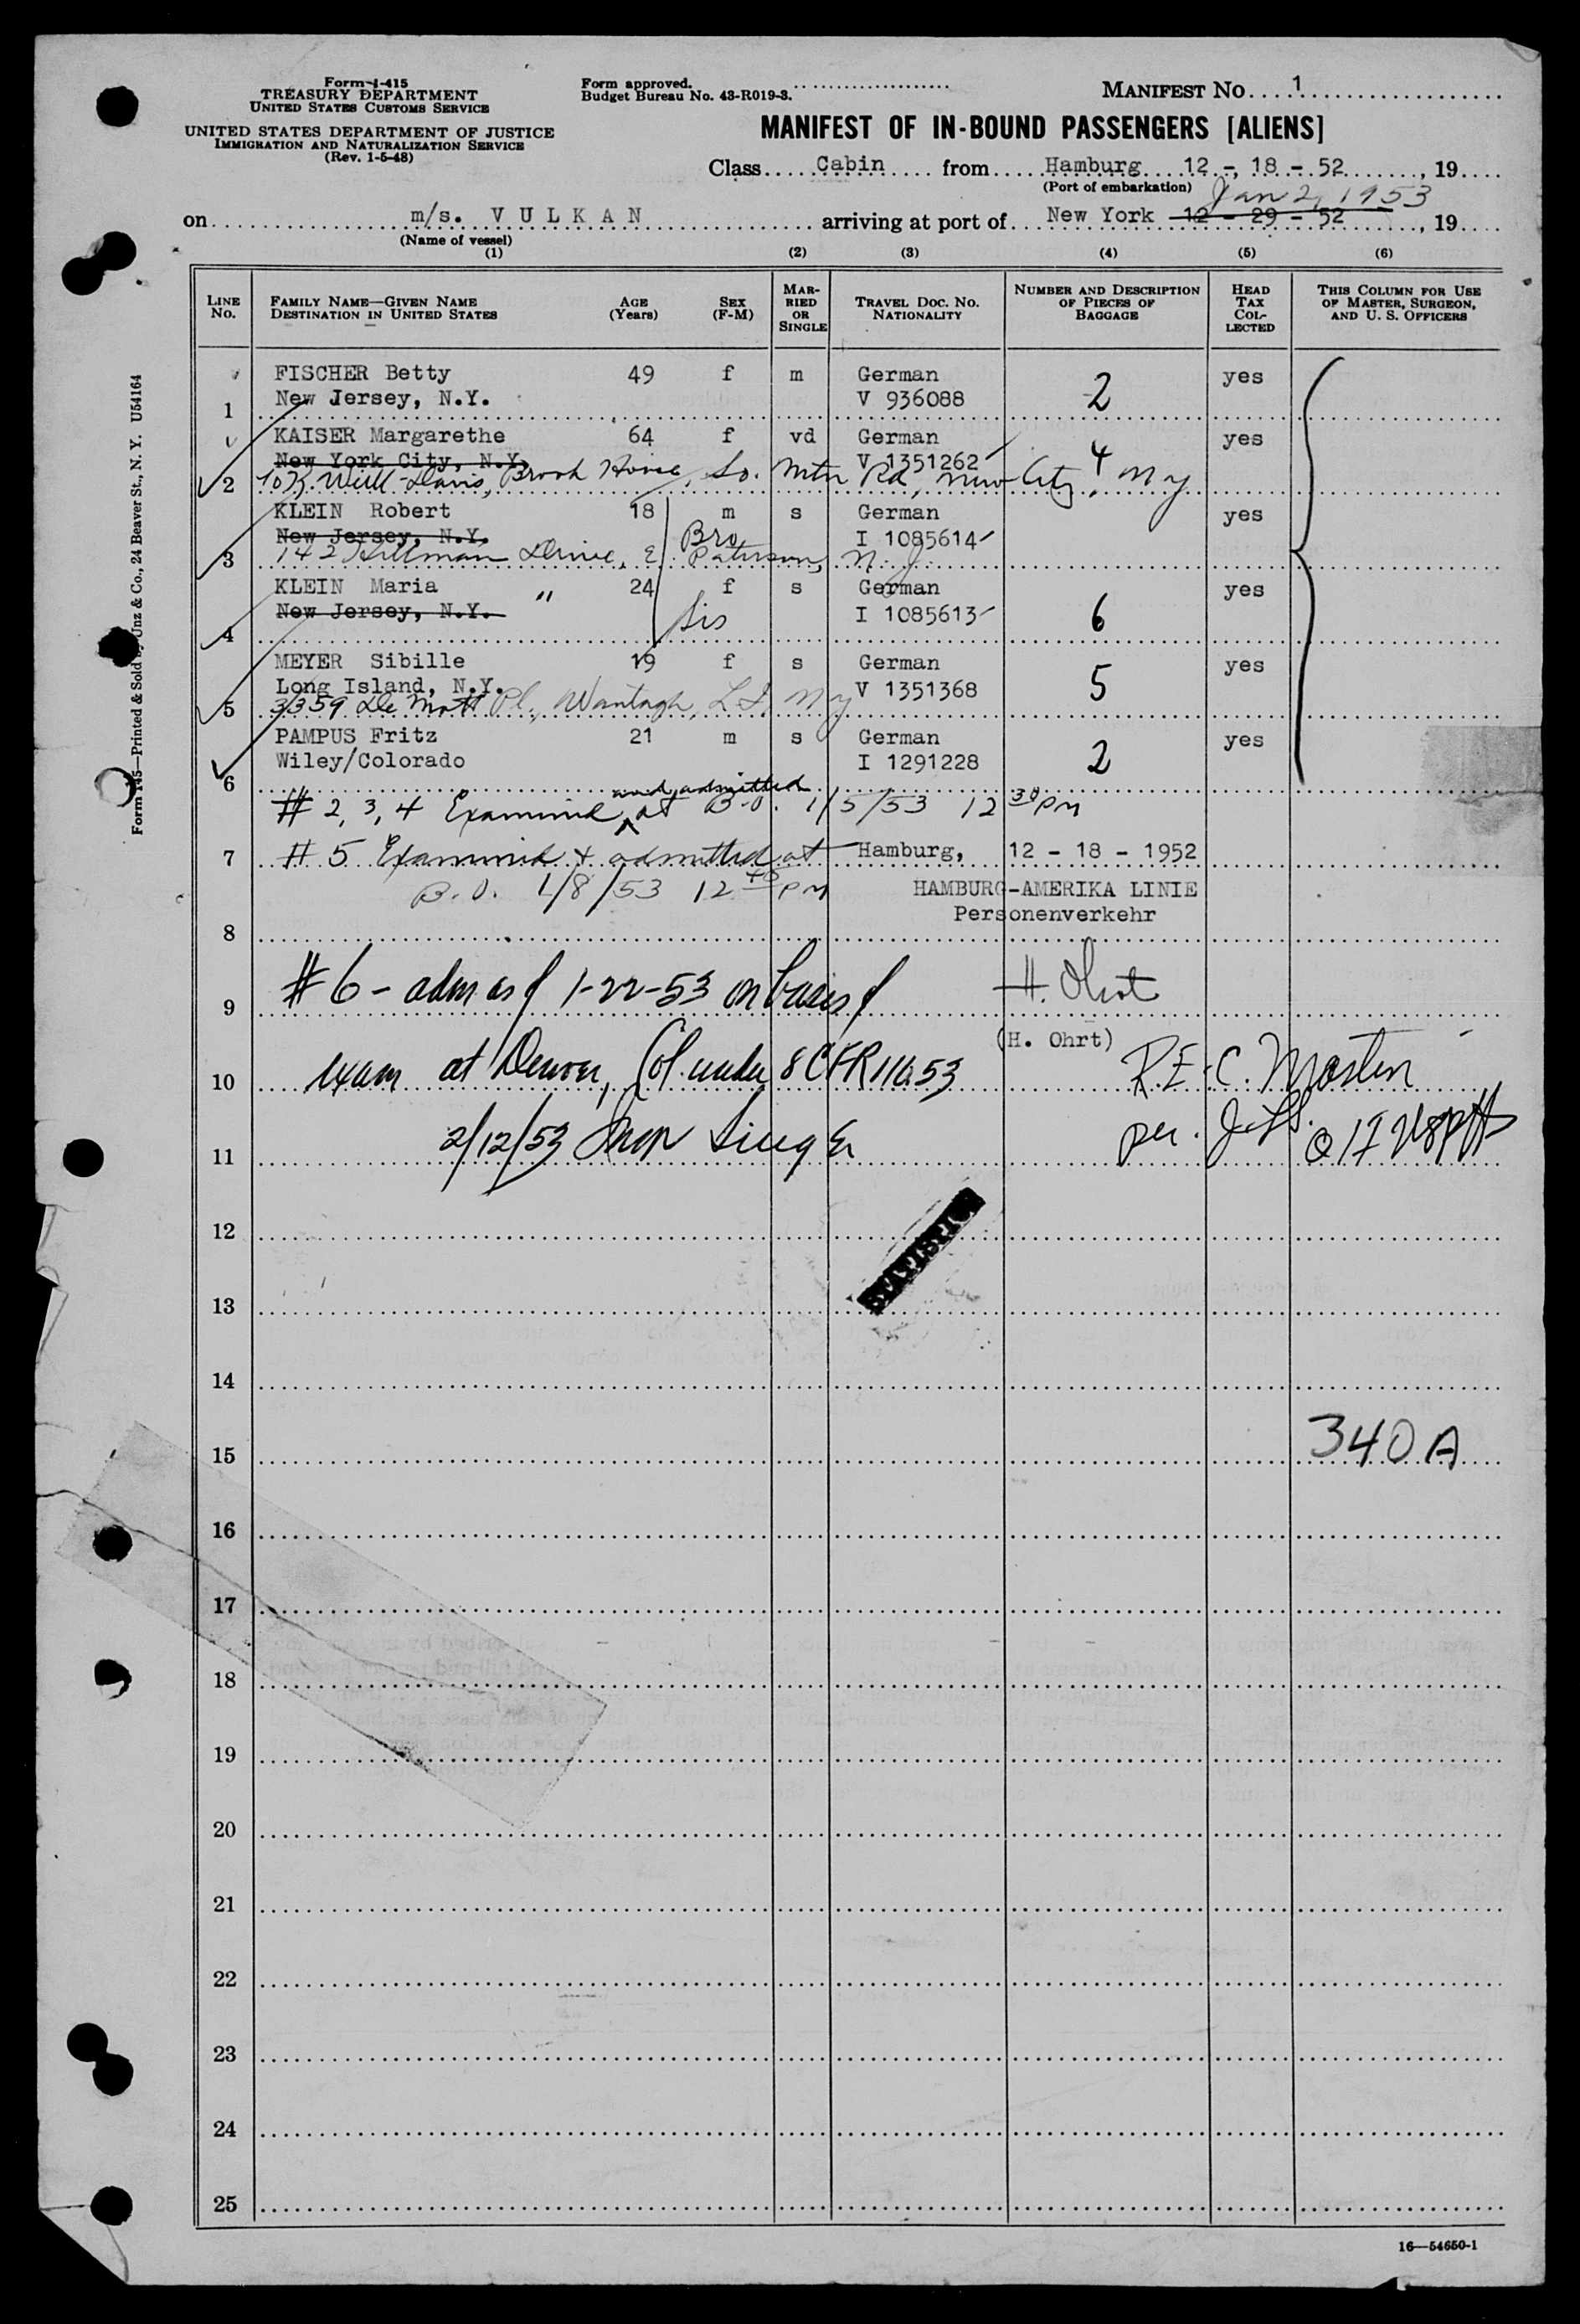 Form I-415
TREASURY DEPARTMENT
UNITED STATES CUSTOMS SERVICE
UNITED STATES DEPARTMENT OF JUSTICE
IMMIGRATION AND NATURALIZATION SERVICE
(Rev. 1-5-48)
Form approved.
Budget Bureau No. 43-R019-3.
MANIFEST No. 1
MANIFEST OF IN-BOUND PASSENGERS [ALIENS]
Class Cabin from Hamburg 12 - 18 - 52, 19
(Port of embarkation)
Jan 2, 1953
on m/s. VULKAN arriving at port of New York 12 - 29 - 52, 19
(Name of vessel)
(1) (2) (3) (4) (5) (6)
LINE No. FAMILY NAME—GIVEN NAME DESTINATION IN UNITED STATES AGE (Years) SEX (F-M) MARRIED OR SINGLE TRAVEL DOC. No. NATIONALITY NUMBER AND DESCRIPTION OF PIECES OF BAGGAGE HEAD TAX COLLECTED THIS COLUMN FOR USE OF MASTER, SURGEON, AND U. S. OFFICERS
FISCHER Betty 49 f m German 2 yes
1 New Jersey, N.Y. V 936088
KAISER Margarethe 64 f vd German 4 yes
New York City, N.Y. V 1351262
2 Davis, Brook House, So. Mtn Rd, New City, N Y
KLEIN Robert 18 m s German yes
New Jersey, N.Y. Bro I 1085614
3 142 Hillman Drive, E. Paterson, N. J.
KLEIN Maria " 24 f s German yes
New Jersey, N.Y. Sis I 1085613 6
4
MEYER Sibille 19 f s German yes
Long Island, N.Y. V 1351368 5
5 3359 De Mott Pl., Wantagh, L I, N Y
PAMPUS Fritz 21 m s German yes
Wiley/Colorado I 1291228 2
6
# 2, 3, 4 Examined and admitted at B.O. 1/5/53 12 30 PM
7 # 5 Examined & admitted at Hamburg, 12 - 18 - 1952
B.O. 1/8/53 12 PM HAMBURG-AMERIKA LINIE
Personenverkehr
8
9 # 6 - adm as of 1-22-53 on basis of H. Ohrt
(H. Ohrt)
10 exam at Denver, Col. under 8 CFR 110.53 R. E. C. Masten
11 2/12/53 per.
STATISTIC
12
13
14
15 340 A
16
17
18
19
20
21
22
23
24
25
16—54650-1
Form I-415—Printed & Sold by Unz & Co., 24 Beaver St., N. Y. U54164